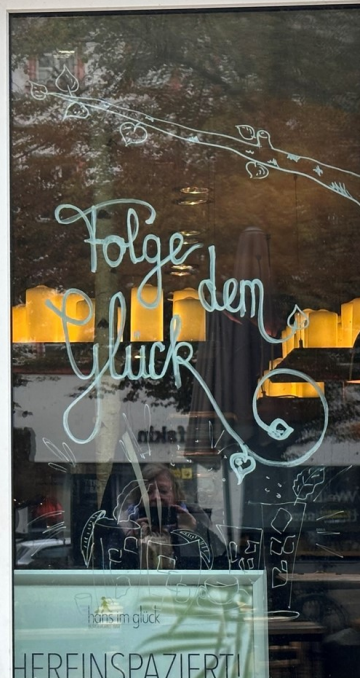 Folge
dem
Glück
hans im glück
HEREINSPAZIERT!